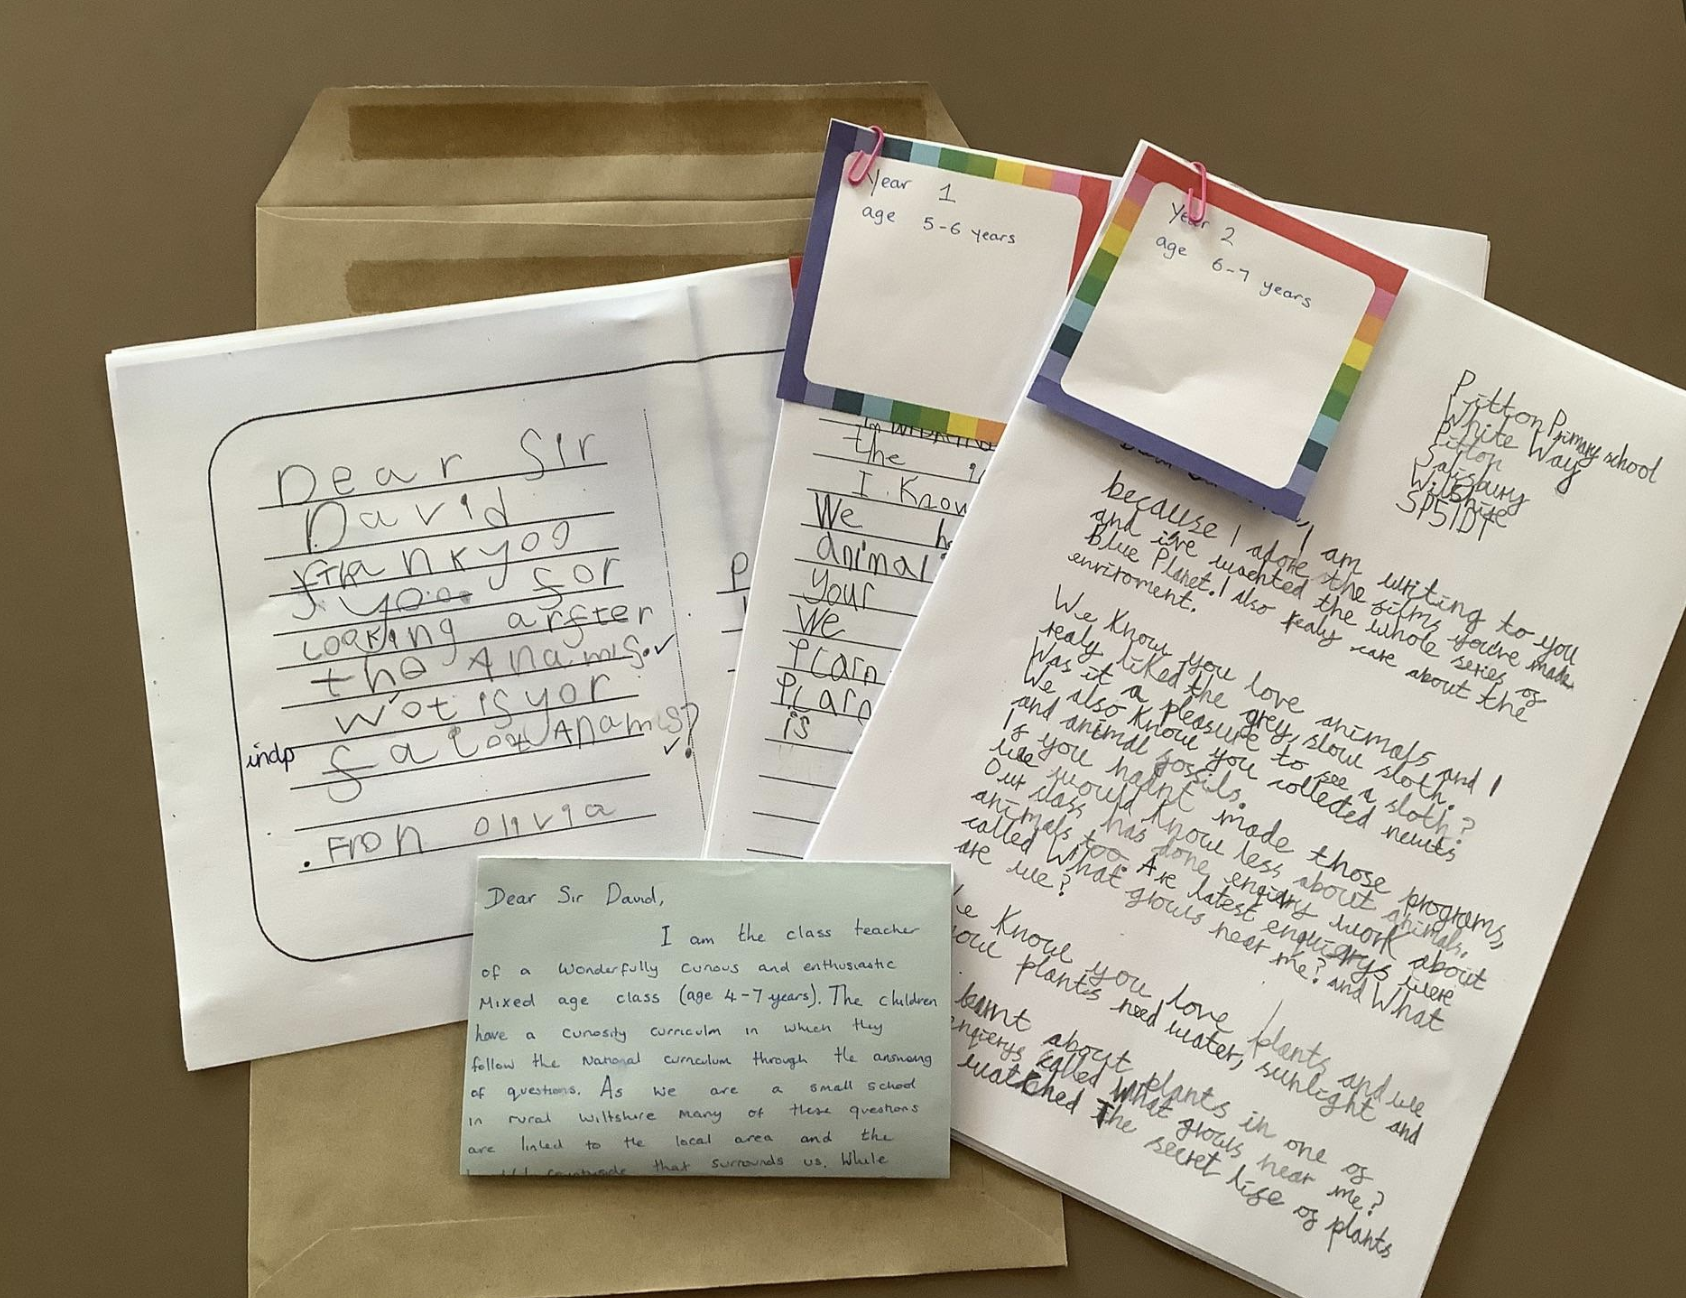 Dear Sir
David
thankyoo
for
looking arfter
the Anamls.
wot is yor
Anamls?
indp
From olivia
Year 1
age 5-6 years
the
I Know
We
animal
your
We
is
Year 2
age 6-7 years
Pitton Primary school
White Way
Pitton
Salisbury
Wiltshire
SP51DT
I am writing to you
because I adore the films you've made
and i've wachted the whole series of
Blue Planet. I also realy care about the
enviroment.
We Know you love animals and I
realy liked the grey, slow sloth.
Was it a pleasure to see a sloth?
We also know you collected newts
and animal fossils.
If you hadnt made those programs,
we would know less about animals.
Our class has done enqiery work about
animals too. Are latest enquierys were
called What grows near me? and What
are we?
We Know you love plants and we
know plants need water, sunlight and
learnt about plants in one of
enqierys called What grows near me?
watched The secret life of plants
Dear Sir David,
I am the class teacher
of a wonderfully curious and enthusiastic
mixed age class (age 4-7 years). The children
have a curiosity curriculm in which they
follow the National curriculum through the answering
of questions. As we are a small school
in rural Wiltshire many of these questions
are linked to the local area and the
countryside that surrounds us. While